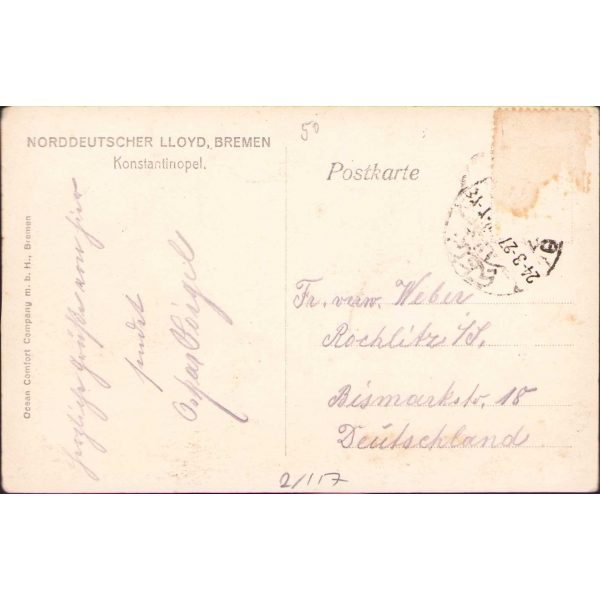 NORDDEUTSCHER LLOYD, BREMEN
Konstantinopel.
Postkarte
50
24-3-27
Ocean Comfort Company m. b. H., Bremen
Herzliche Grüße von hier
sendet
Oskar
Fr. verw. Weber
Rochlitz i/S.
Bismarkstr. 18
Deutschland
2/117